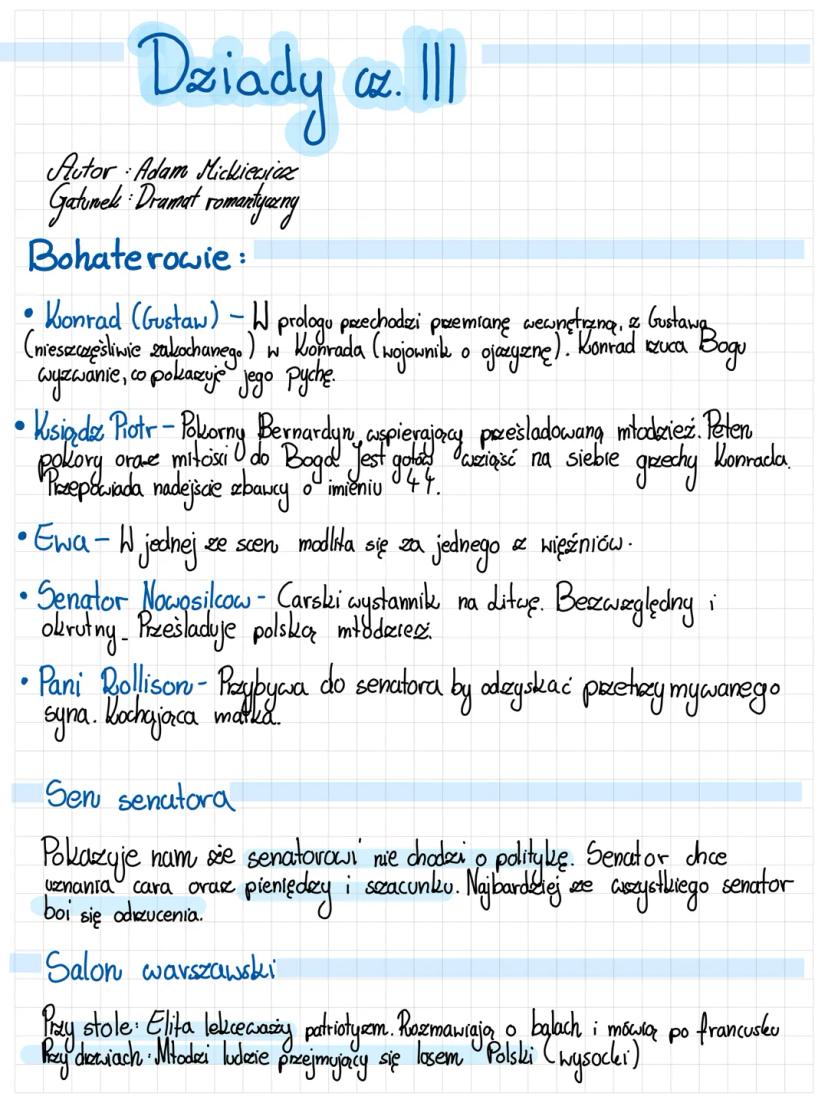 Dziady cz. III
Autor: Adam Mickiewicz
Gatunek: Dramat romantyczny
Bohaterowie:
• Konrad (Gustaw) – W prologu przechodzi przemianę wewnętrzną, z Gustawa
(nieszczęśliwie zakochanego) w Konrada (wojownik o ojczyznę). Konrad rzuca Bogu
wyzwanie, co pokazuje jego pychę.
• Ksiądz Piotr – Pokorny Bernardyn, wspierający prześladowaną młodzież. Pełen
pokory oraz miłości do Boga. Jest gotów wziąść na siebie grzechy Konrada.
Przepowiada nadejście zbawcy o imieniu 44.
• Ewa – W jednej ze scen modliła się za jednego z więźniów.
• Senator Nowosilcow – Carski wysłannik na Litwę. Bezwzględny i
okrutny. Prześladuje polską młodzież.
• Pani Rollison – Przybywa do senatora by odzyskać przetrzymywanego
syna. Kochająca matka.
Sen senatora
Pokazuje nam że senatorowi nie chodzi o politykę. Senator chce
uznania cara oraz pieniędzy i szacunku. Najbardziej ze wszystkiego senator
boi się odrzucenia.
Salon warszawski
Przy stole: Elita lekceważy patriotyzm. Rozmawiają o balach i mówią po francusku
Przy drzwiach: Młodzi ludzie przejmujący się losem Polski (Wysocki)